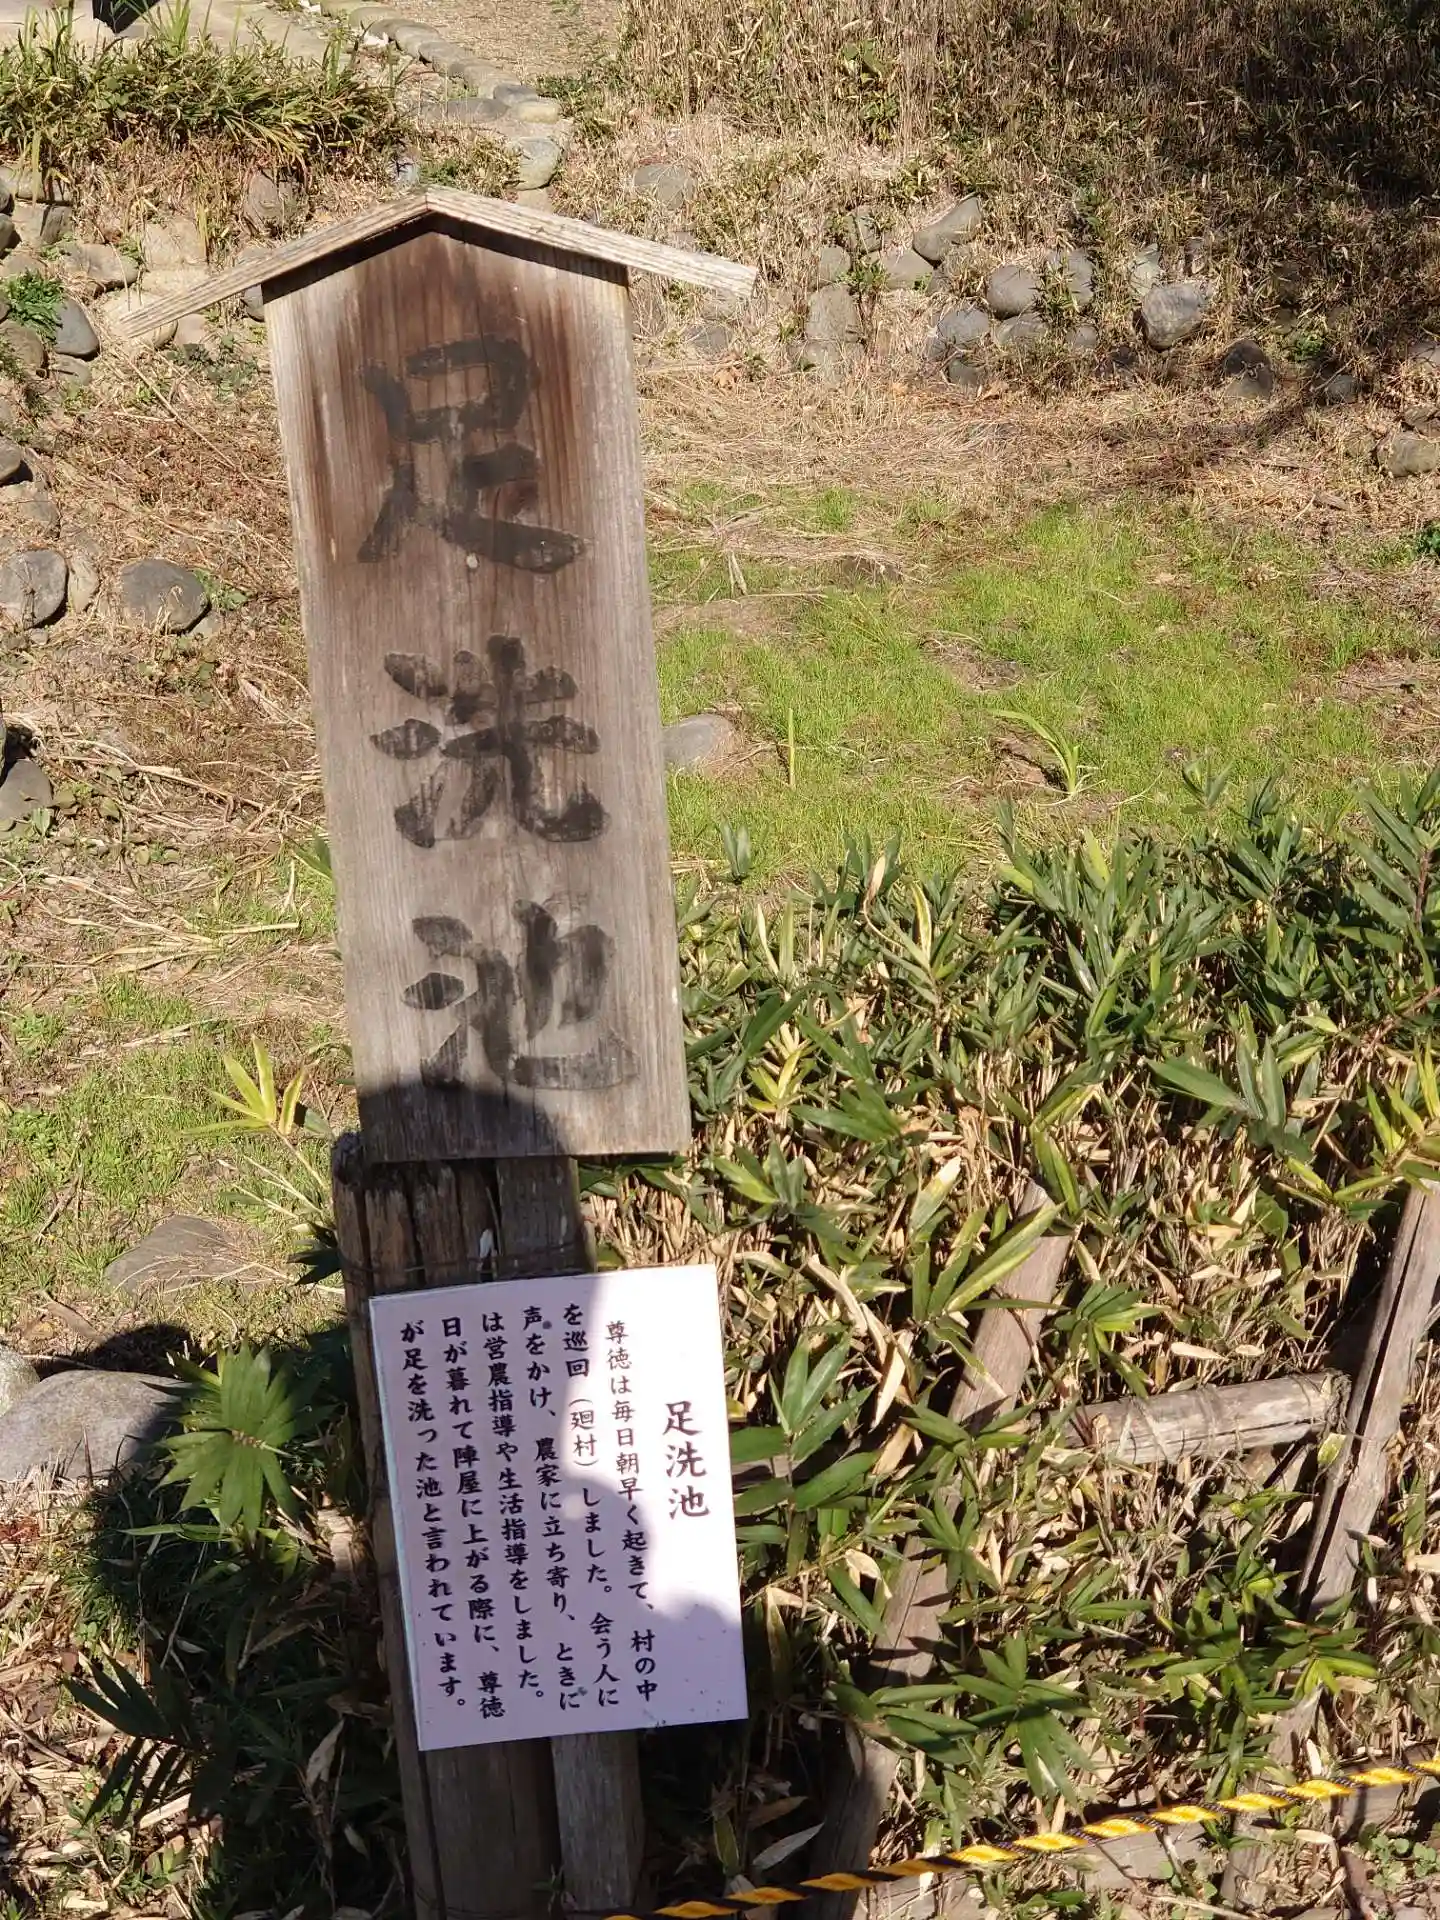 足洗池
足洗池
尊徳は毎日朝早く起きて、村の中
を巡回（廻村）しました。会う人に
声をかけ、農家に立ち寄り、ときに
は営農指導や生活指導をしました。
日が暮れて陣屋に上がる際に、尊徳
が足を洗った池と言われています。